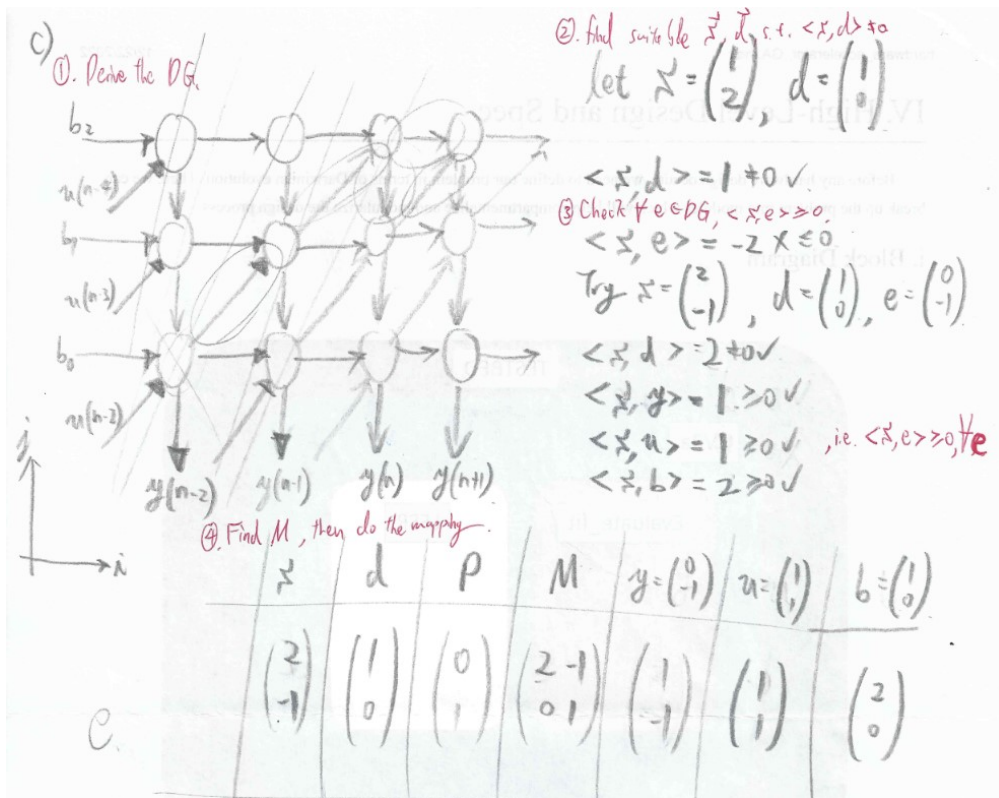 c)
①. Derive the DG.
b₂
u(n-4)
b₁
u(n-3)
b₀
u(n-2)
y(n-2) y(n-1) y(n) y(n+1)
j
i
②. find suitable s⃗, d⃗ s.t. <s,d> ≠0
let s⃗ = (1 2), d = (1 0)
<s⃗, d> = 1 ≠0 ✓
③ Check ∀ e∈DG, <s,e> ≥0
<s⃗, e> = -2 X ≤0
Try s⃗ = (2 -1), d = (1 0), e = (0 -1)
<s⃗, d> = 2 ≠0 ✓
<s⃗, y> = 1 ≥0 ✓
<s⃗, u> = 1 ≥0 ✓
, i.e. <s⃗,e> ≥0, ∀e
<s⃗, b> = 2 ≥0 ✓
④. Find M, then do the
s⃗ d P M y = (0 -1) u = (1 1) b = (1 0)
(2 -1) (1 0) (0 1) (2 -1 0 1) (1 -1) (1 1) (2 0)
IV. High-Level Design and Spec
i. Block Diagram